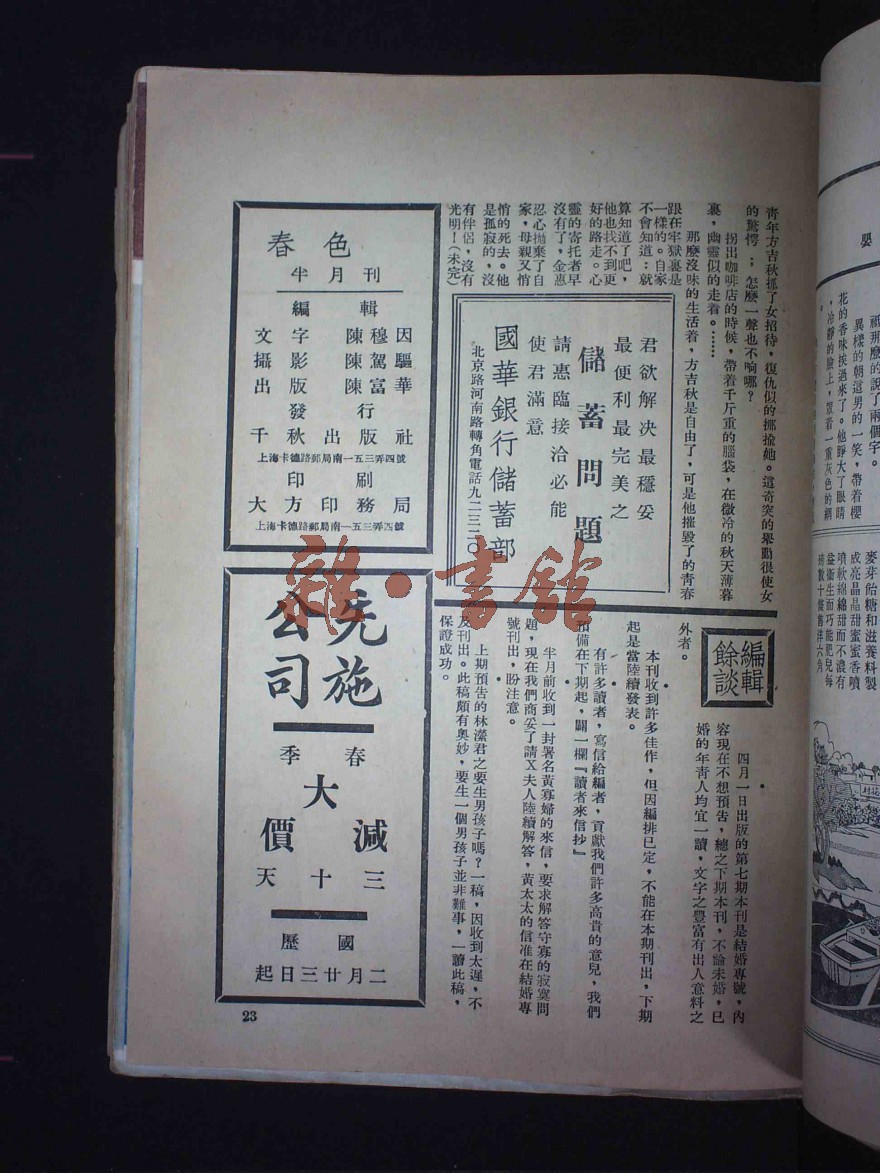 青年方吉秋抓了女招待，復仇似的揶揄她。這奇突的舉動很使女
的驚愕；怎麼一聲也不响哪？
拐出咖啡店的時候，帶着千斤重的腦袋，在微冷的秋天薄暮
裏，幽靈似的走着。……
那麼沒味的生活着，方吉秋是自由了，可是他摧毀了的青春
跟在牢獄裏是
一樣的。自家
不會知道；就
算知道了吧，
他也找不到更
好的路走。心
靈的寄托者早
沒有了，金惠
忍心拋棄了自
家，母親又悄
悄的死去。他
是孤寂的，沒
有伴侶，沒有
光明！（未完）
君欲解决最穩妥
最便利最完美之
儲蓄問題
請惠臨接洽必能
使君滿意
國華銀行儲蓄部
北京路河南路轉角電話九二三二〇
春色
半月刊
編輯
文字 陳穆因
攝影 陳駕驅
出版 陳富華
發行
千秋出版社
上海卡德路郵局南一五三弄四號
印刷
大方印務局
上海卡德路郵局南一五三弄四號
編輯
餘談
四月一日出版的第七期本刊是結婚專號，內
容現在不想預告，總之下期本刊，不論未婚，已
婚的年青人均宜一讀，文字之豐富有出人意料之
外者。
本刊收到許多佳作，但因編排已定，不能在本期刊出，下期
起是當陸續發表。
有許多讀者，寫信給編者，貢獻我們許多高貴的意見，我們
預備在下期起，闢一欄『讀者來信抄』
半月前收到一封署名黃寡婦的來信，要求解答守寡的寂寞問
題，現在我們商妥了請Ｘ夫人陸續解答，黃太太的信准在結婚專
號刊出，盼注意。
上期預告的林瀠君之要生男孩子嗎？一稿，因收到太遲，不
及刊出。此稿頗有奧妙，要生一個男孩子並非難事，一讀此稿，
保證成功。
先施
公司
春季
大
減價
三十天
國歷
二月廿三日起
23
雜·書館
祇那麼的說了兩個字。
異樣的朝這男的一笑，帶着櫻
花的香味挨過來了。他睜大了眼睛
，冷靜的臉上，罩着一重灰色的網
。
嬰
麥芽飴糖和滋養料製
成亮晶晶甜蜜蜜香噴
噴軟綿綿甜而不濃有
益衛生而巧能肥兒每